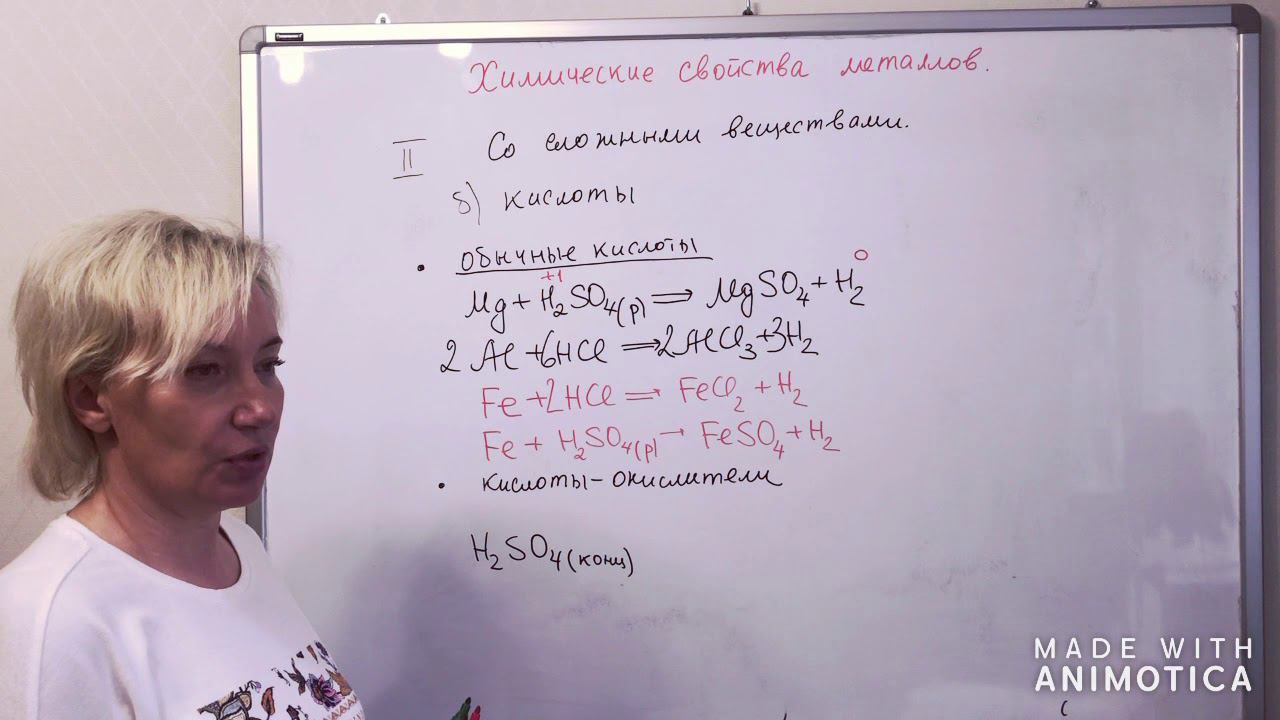 Химические свойства металлов.
II Со сложными веществами.
б) кислоты
• обычные кислоты
Mg + H₂⁺¹SO₄(р) ⟹ MgSO₄ + H₂⁰
2Al + 6HCl ⟹ 2AlCl₃ + 3H₂
Fe + 2HCl ⟹ FeCl₂ + H₂
Fe + H₂SO₄(р) → FeSO₄ + H₂
• кислоты-окислители
H₂SO₄(конц)
MADE WITH
ANIMOTICA